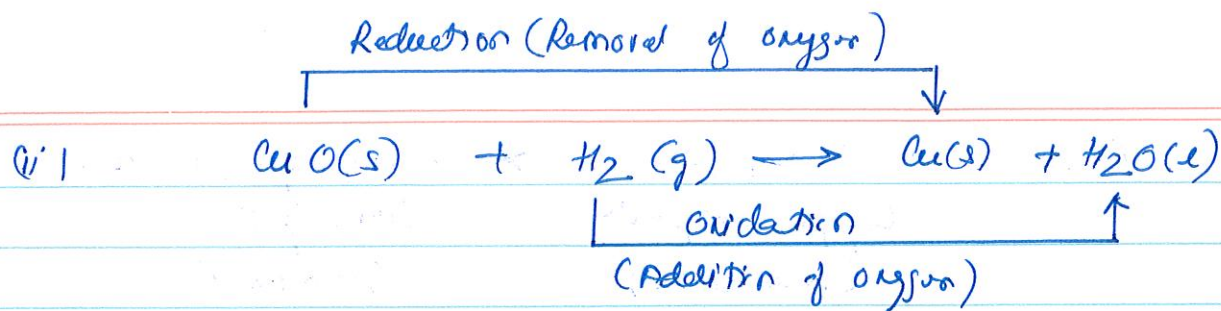 Reduction (Removal of oxygen)
(ii) CuO(s) + H2 (g) → Cu(s) + H2O(l)
Oxidation
(Addition of oxygen)